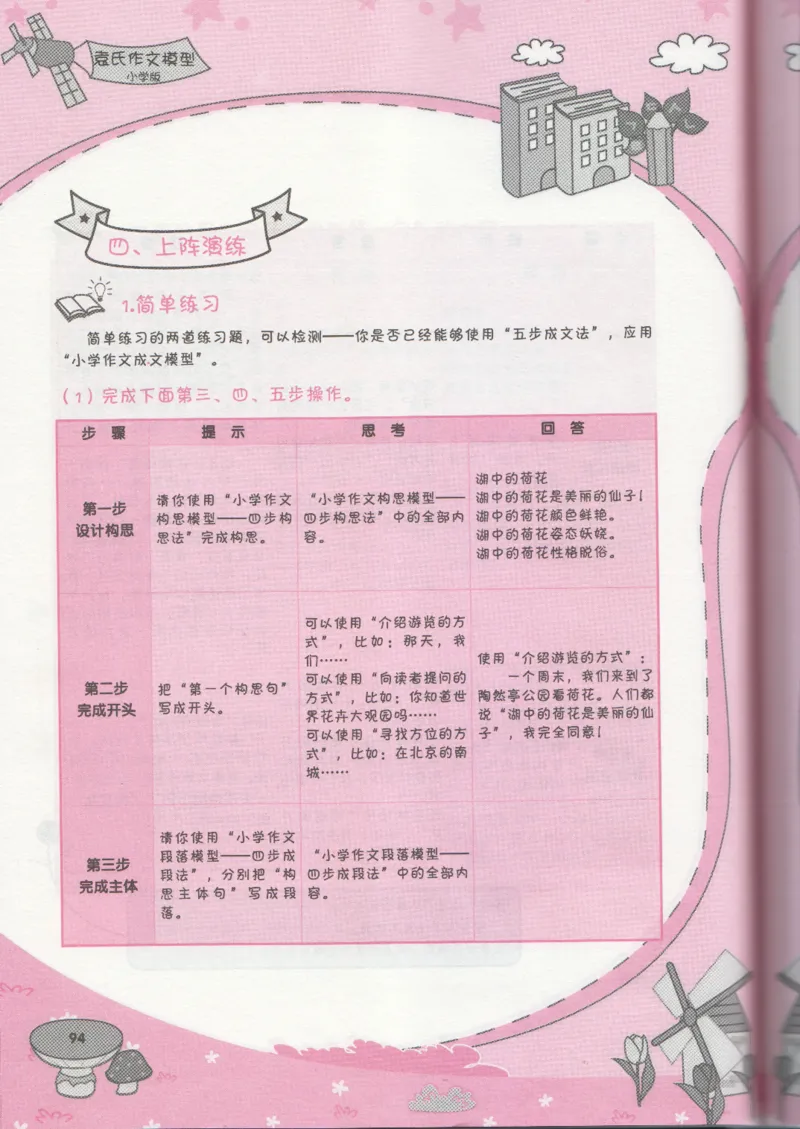 袁氏作文模型
小学版
四、上阵演练
1.简单练习
简单练习的两道练习题，可以检测——你是否已经能够使用“五步成文法”，应用
“小学作文成文模型”。
（1）完成下面第三、四、五步操作。
步 骤
提 示
思 考
回 答
第一步
设计构思
请你使用“小学作文
构思模型——四步构
思法”完成构思。
“小学作文构思模型——
四步构思法”中的全部内
容。
湖中的荷花
湖中的荷花是美丽的仙子！
湖中的荷花颜色鲜艳。
湖中的荷花姿态妖娆。
湖中的荷花性格脱俗。
第二步
完成开头
把“第一个构思句”
写成开头。
可以使用“介绍游览的方
式”，比如：那天，我
们……
可以使用“向读者提问的
方式”，比如：你知道世
界花卉大观园吗……
可以使用“寻找方位的方
式”，比如：在北京的南
城……
使用“介绍游览的方式”：
一个周末，我们来到了
陶然亭公园看荷花。人们都
说“湖中的荷花是美丽的仙
子”，我完全同意！
第三步
完成主体
请你使用“小学作文
段落模型——四步成
段法”，分别把“构
思主体句”写成段
落。
“小学作文段落模型——
四步成段法”中的全部内
容。
94